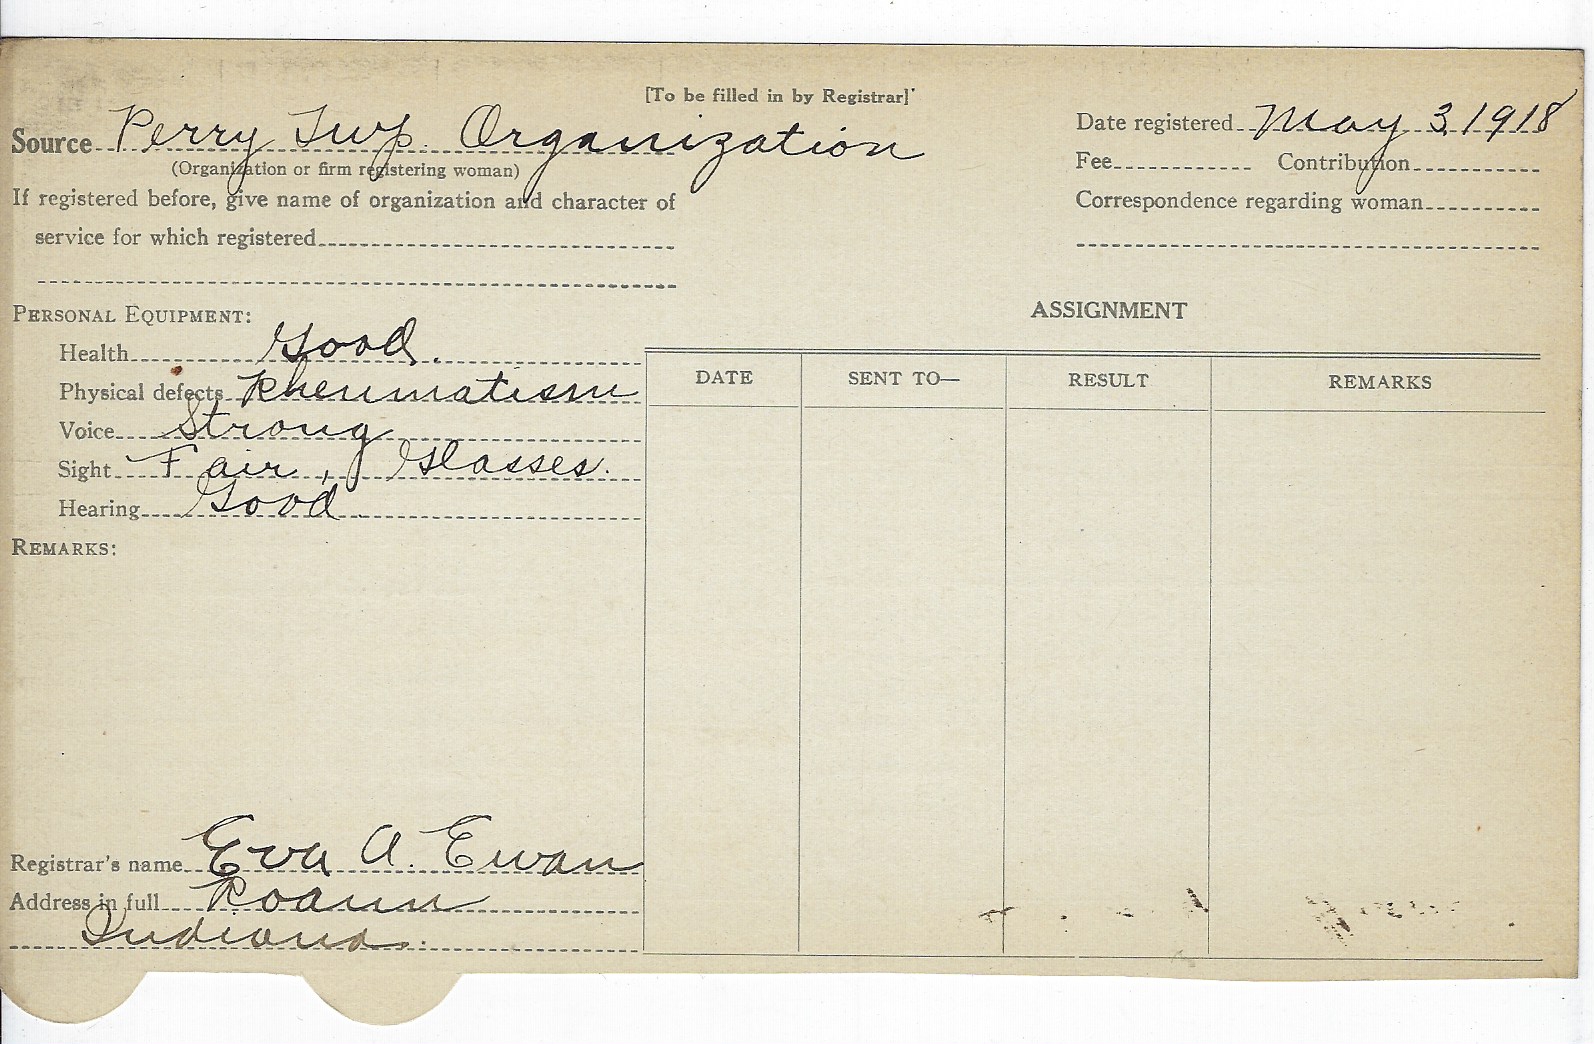 [To be filled in by Registrar]
Source Perry Twp. Organization
(Organization or firm registering woman)
If registered before, give name of organization and character of
service for which registered
Date registered May 3, 1918
Fee Contribution
Correspondence regarding woman
PERSONAL EQUIPMENT:
Health Good.
Physical defects Rheumatism
Voice Strong
Sight Fair, Glasses.
Hearing Good
REMARKS:
Registrar's name Eva A. Ewan
Address in full Roann
Indiana.
ASSIGNMENT
DATE SENT TO— RESULT REMARKS